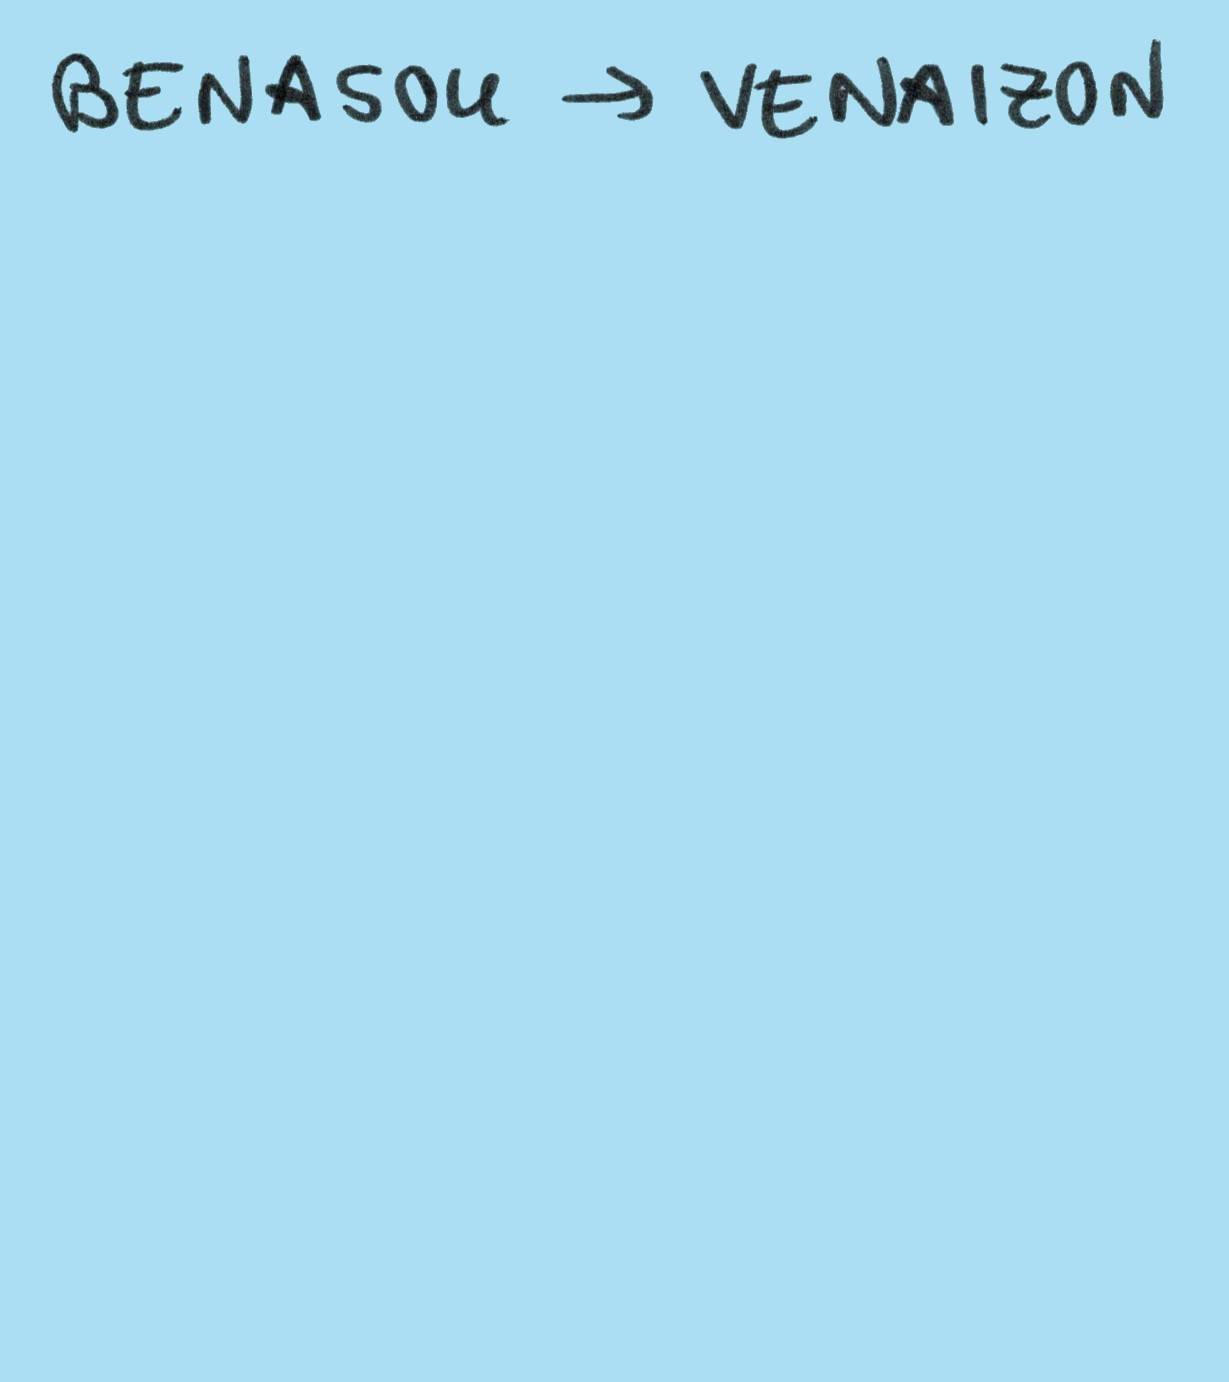 BENASOU → VENAIZON